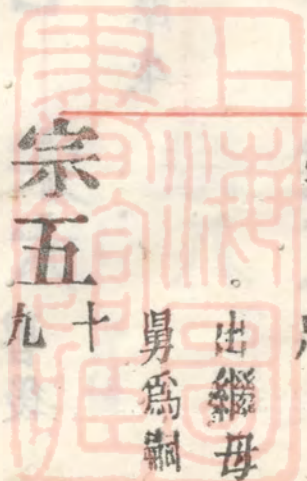 出繼母
舅爲嗣
宗五
十九
上海圖
書館藏